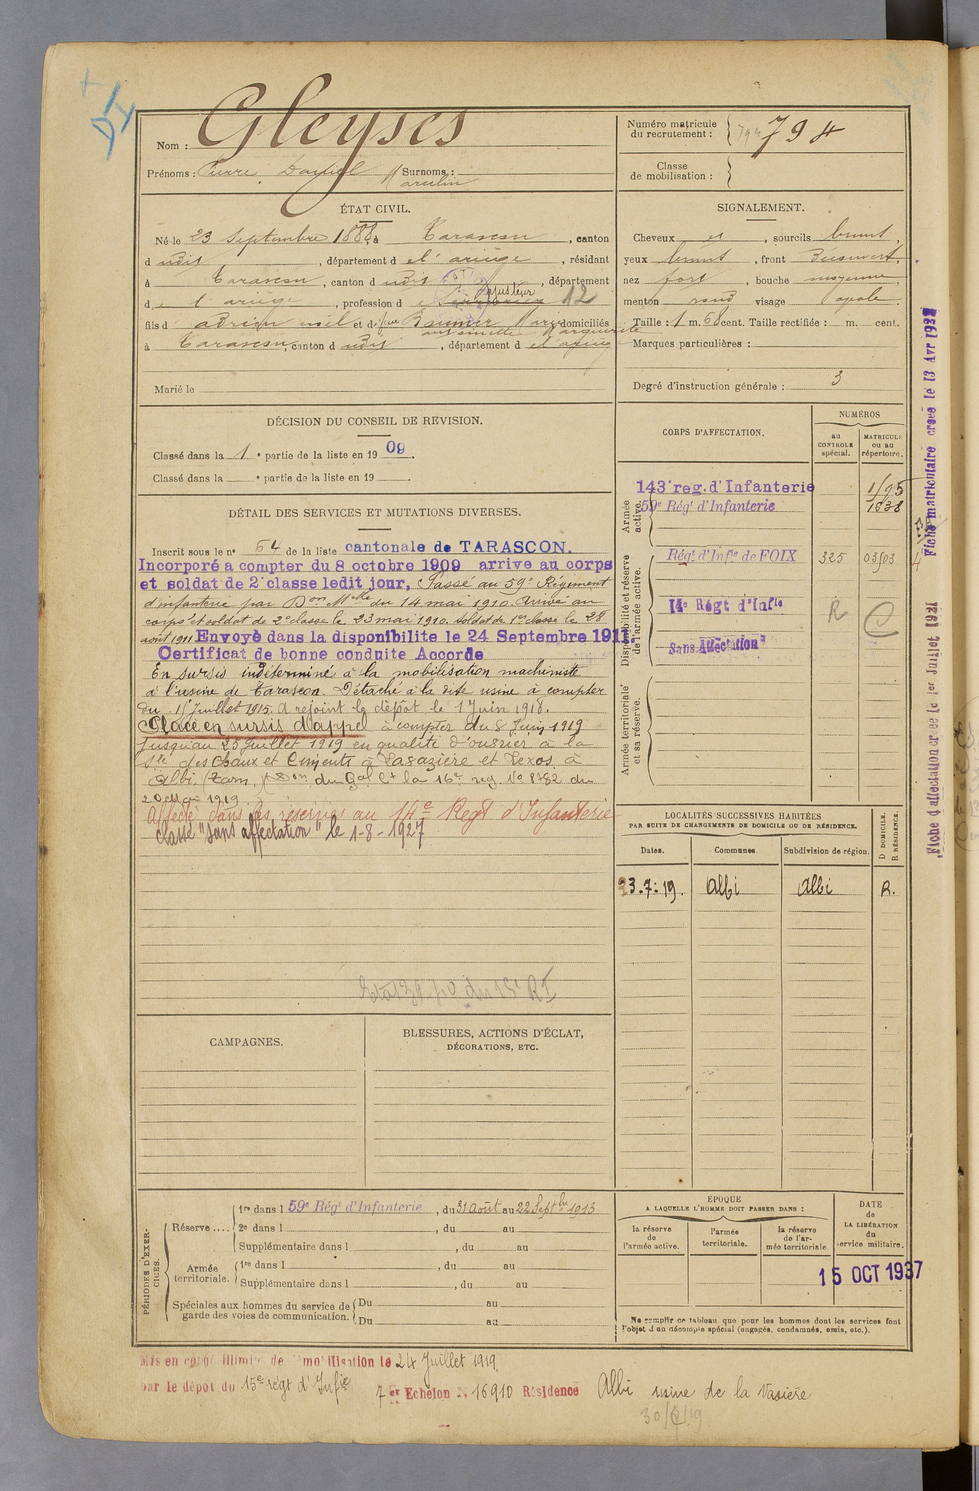 Nom : Gleyses
Prénoms : Pierre Surnoms :
Numéro matricule
du recrutement : 794 794
Classe
de mobilisation :
ÉTAT CIVIL.
Né le 23 Septembre 1888 à Tarascon, canton
d udit, département d e l'ariège, résidant
à Tarascon, canton d udit, département
d e l'ariège, profession d ajusteur 12
fils d et d domiciliés
à Tarascon, canton d udit, département d e l'ariège
Marié le
SIGNALEMENT.
Cheveux et, sourcils bruns,
yeux bruns, front Découvert,
nez fort, bouche moyenne,
menton rond visage ovale.
Taille : 1 m. 68 cent. Taille rectifiée : m. cent.
Marques particulières :
Degré d'instruction générale : 3
DÉCISION DU CONSEIL DE RÉVISION.
Classé dans la 1e partie de la liste en 1909.
Classé dans la e partie de la liste en 19
DÉTAIL DES SERVICES ET MUTATIONS DIVERSES.
Inscrit sous le n° 54 de la liste cantonale de TARASCON.
Incorporé a compter du 8 octobre 1909 arrive au corps
et soldat de 2e classe ledit jour, Passé au 59e Régiment
d'infanterie par Don Mlle du 14 mai 1910. Arrivé au
corps et soldat de 2e classe le 23 mai 1910. Soldat de 1re classe le 28
août 1911 Envoyé dans la disponibilite le 24 Septembre 1911.
Certificat de bonne conduite Accorde
En sursis indéterminé à la mobilisation machiniste
à l'usine de Tarascon. Détaché à la dite usine à compter
du 1r Juillet 1915. A rejoint le dépôt le 1 Juin 1918.
Placé en sursis d'appel à compter du 8 Juin 1919
jusqu'au 25 Juillet 1919 en qualité d'ouvrier à la
Sté des Chaux et Ciments à Lasazière et Lexos à
Albi (Tarn) (Don du Gal Ct la 16e reg. No 8782 du
20 Mai 1919
Affecté dans les réserves au 14e Régt d'Infanterie
classé "sans affectation" le 1-8-1927
CORPS D'AFFECTATION.
NUMÉROS
au
CONTROLE
spécial.
MATRICULE
ou au
répertoire.
Armée
active.
143e reg. d'Infanterie
59e Régt d'Infanterie 1638
Disponibilité et réserve
de l'armée active.
Régt d'Infie de FOIX 325 03903
14e Régt d'Infie R
Sans Affectation
Armée territoriale
et sa réserve.
Fiche matriculaire créée le 13 Avr 1937
Fiche d'affectation créée le 1er Juillet 1931
LOCALITÉS SUCCESSIVES HABITÉES
PAR SUITE DE CHANGEMENTS DE DOMICILE OU DE RÉSIDENCE.
Dates. Communes. Subdivision de région. D. DOMICILE. R. RÉSIDENCE.
23.7.19. Albi Albi R.
CAMPAGNES.
BLESSURES, ACTIONS D'ÉCLAT,
DÉCORATIONS, ETC.
PÉRIODES D'EXER-
CICES.
Réserve....
1re dans l 59e Régt d'Infanterie, du 31 août au 22 Septbre 1913
2e dans l, du au
Supplémentaire dans l, du au
Armée
territoriale.
1re dans l, du au
Supplémentaire dans l, du au
Spéciales aux hommes du service de
garde des voies de communication.
Du au
Du au
ÉPOQUE
A LAQUELLE L'HOMME DOIT PASSER DANS :
la réserve
de
l'armée active.
l'armée
territoriale.
la réserve
de l'ar-
mée territoriale.
DATE
de
LA LIBÉRATION
du
service militaire.
15 OCT 1937
Ne remplir ce tableau que pour les hommes dont les services font
l'objet d'un décompte spécial (engagés, condamnés, omis, etc.).
Mis en congé illimité de démobilisation le 24 Juillet 1919
par le dépôt du 15e régt d'Infie 7 er Echelon N° 16910 Résidence Albi usine de la Vasière